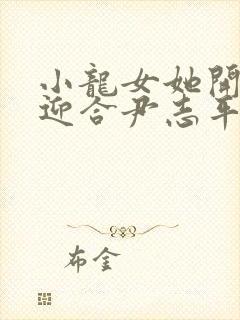 小龍女她開
迎合尹志平
布金